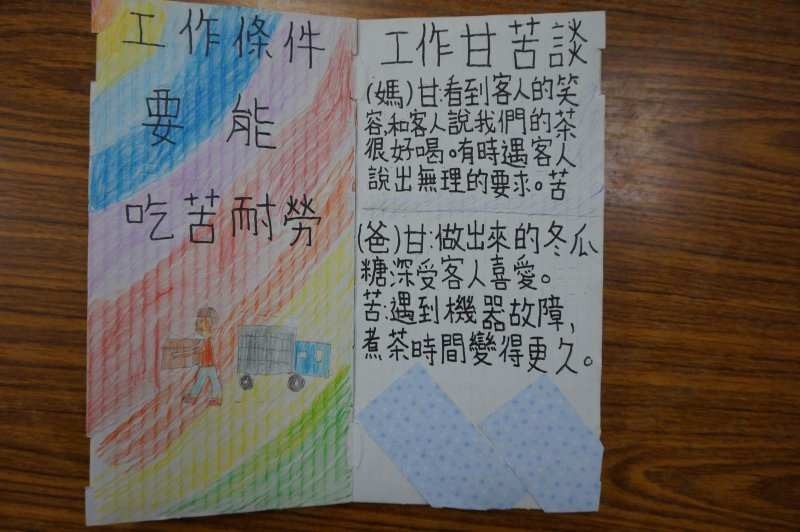 工作條件
要能
吃苦耐勞
工作甘苦談
(媽)甘:看到客人的笑
容,和客人說我們的茶
很好喝。有時遇客人
說出無理的要求。苦
(爸)甘:做出來的冬瓜
糖深受客人喜愛。
苦:遇到機器故障,
煮茶時間變得更久。